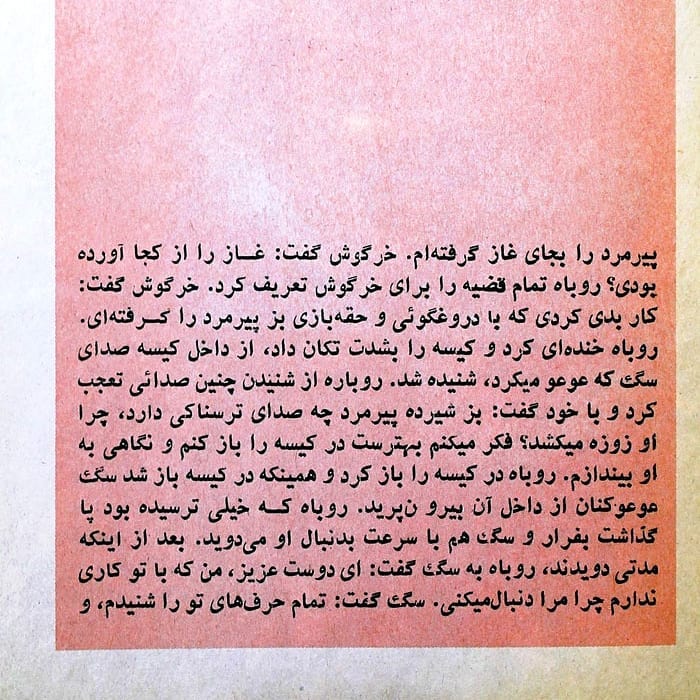 پیرمرد را بجای غاز گرفته‌ام. خرگوش گفت: غــاز را از کجا آورده
بودی؟ روباه تمام قضیه را برای خرگوش تعریف کرد. خرگوش گفت:
کار بدی کردی که با دروغگوئی و حقه‌بازی بز پیرمرد را کــرفته‌ای.
روباه خنده‌ای کرد و کیسه را بشدت تکان داد، از داخل کیسه صدای
سگ که عوعو میکرد، شنیده شد. روباره از شنیدن چنین صدائی تعجب
کرد و با خود گفت: بز شیرده پیرمرد چه صدای ترسناکی دارد، چرا
او زوزه میکشد؟ فکر میکنم بهترست در کیسه را باز کنم و نگاهی به
او بیندازم. روباه در کیسه را باز کرد و همینکه در کیسه باز شد سگ
عوعوکنان از داخل آن بیرو ن‌پرید. روباه کــه خیلی ترسیده بود پا
گذاشت بفرار و سگ هم با سرعت بدنبال او می‌دوید. بعد از اینکه
مدتی دویدند، روباه به سگ گفت: ای دوست عزیز، من که با تو کاری
ندارم چرا مرا دنبال‌میکنی. سگ گفت: تمام حرف‌های تو را شنیدم، و